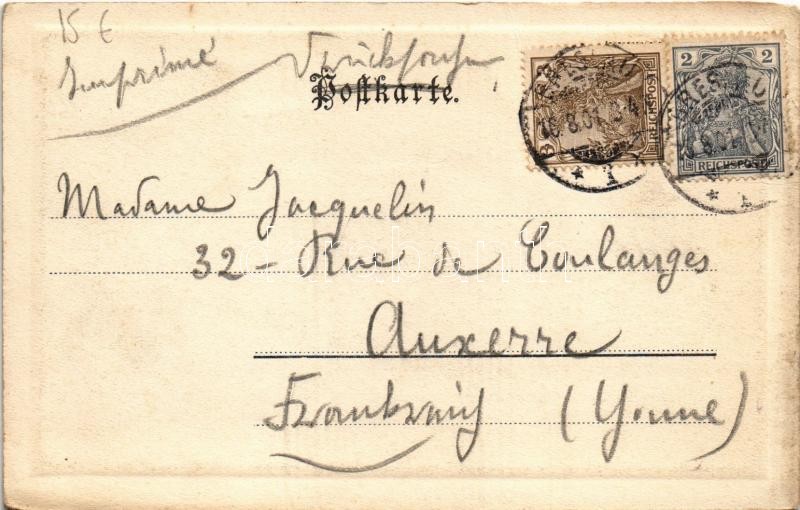 15 €
Imprimé Drucksache
Postkarte.
BRESLAU
1
3
REICHSPOST
2
REICHSPOST
Madame Jacquelin
32 - Rue de Coulanges
Auxerre
Frankreich (Yonne)